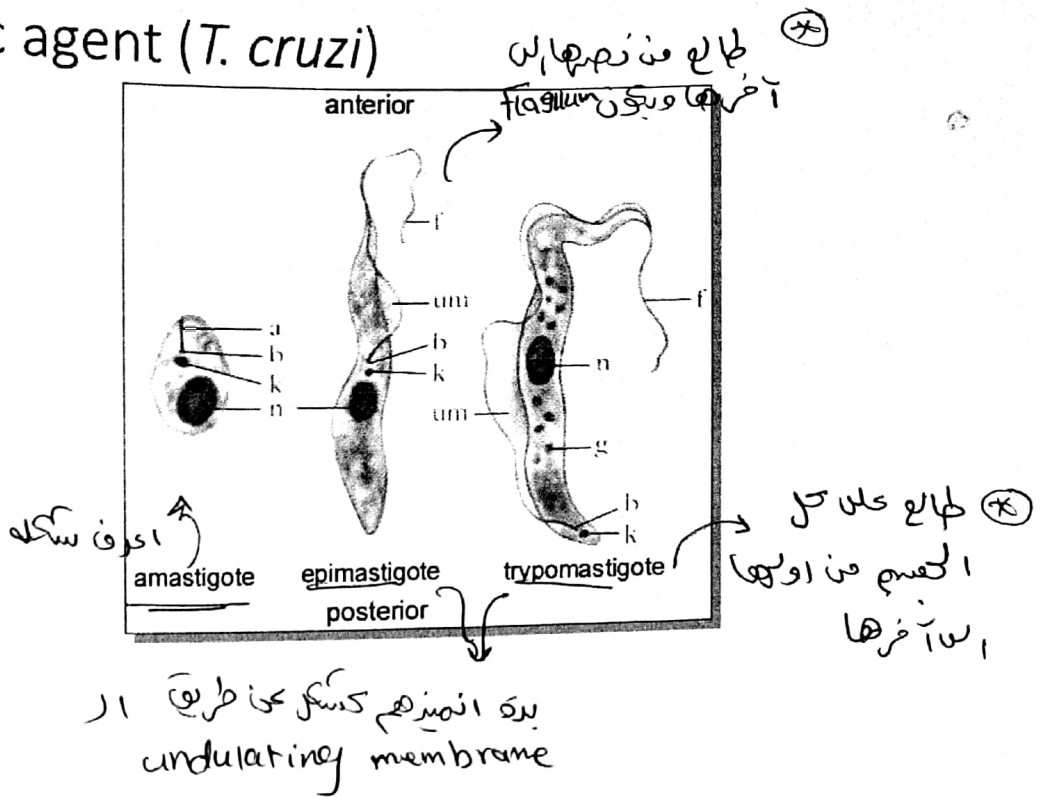 c agent (T. cruzi)
طالع من نصها الى
آخرها وبكون flagllum
anterior
f
um
b
k
a
b
k
n
f
n
um
g
b
k
اعرف شكله
amastigote
epimastigote
trypomastigote
posterior
طالع على كل
الجسم من اولها
الى آخرها
بدنا نميزهم كشكل عن طريق ال
undulating membrane